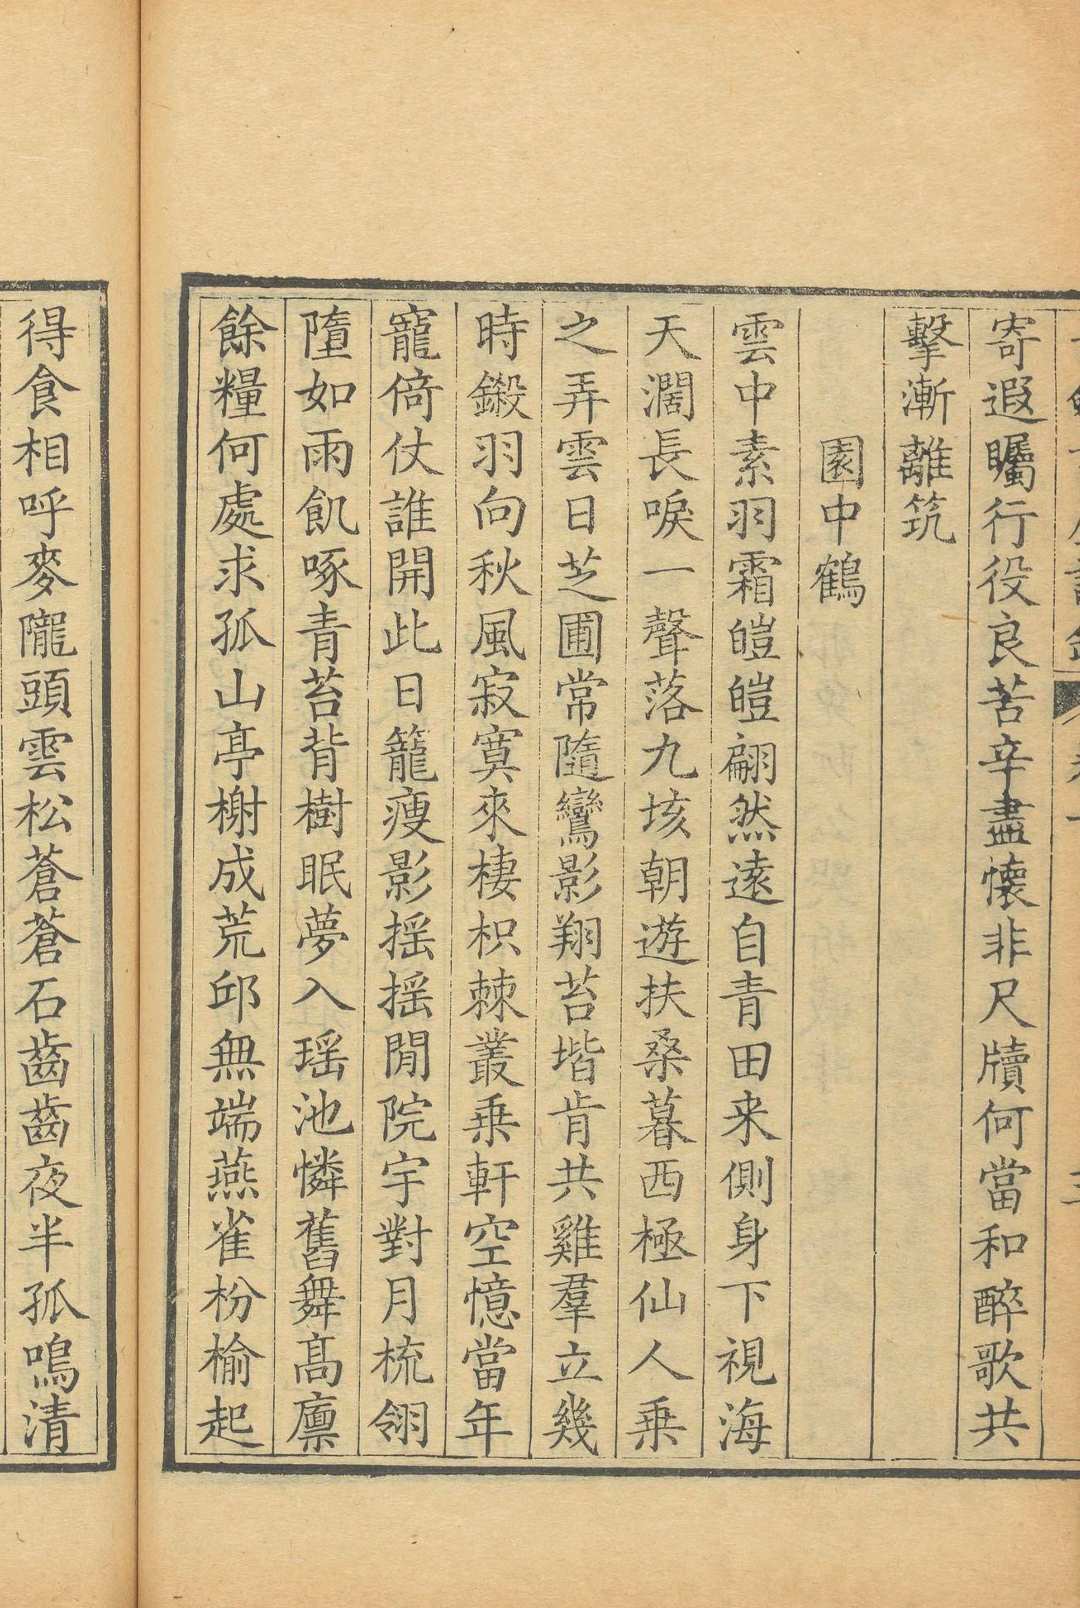 寄遐矚行役良苦辛盡懷非尺牘何當和醉歌共
擊漸離筑
園中鶴
雲中素羽霜皚皚翩然遠自青田来側身下視海
天濶長唳一聲落九垓朝遊扶桑暮西極仙人乗
之弄雲日芝圃常隨鸞影翔苔堦肯共雞羣立幾
時鎩羽向秋風寂寞來棲枳棘叢乗軒空憶當年
寵倚仗誰開此日籠瘦影摇摇閒院宇對月梳翎
墮如雨飢啄青苔背樹眠夢入瑶池憐舊舞髙廪
餘糧何處求孤山亭榭成荒邱無端燕雀枌榆起
得食相呼麥隴頭雲松蒼蒼石齒齒夜半孤鳴清